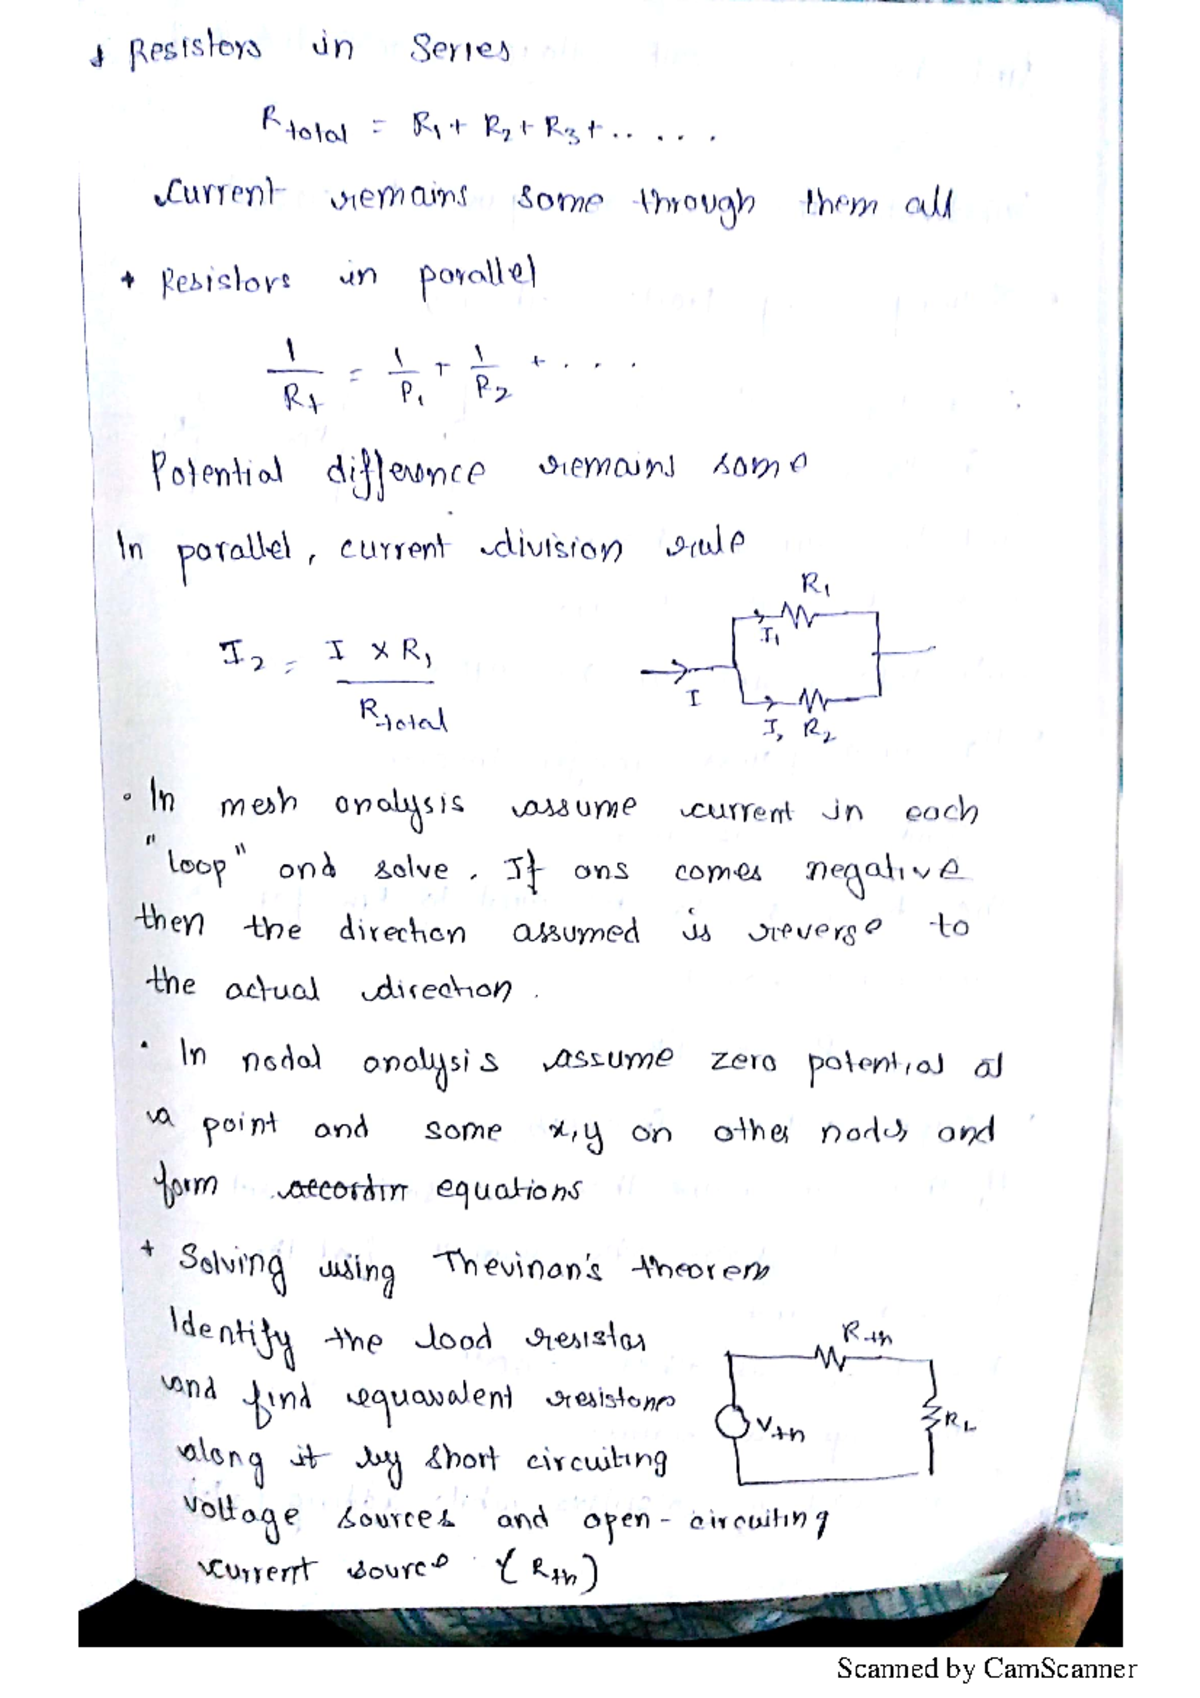 + Resistors in Series
R total = R1 + R2 + R3 + .. . . .
Current remains same through them all
+ Resistors in parallel
1/Rt = 1/R1 + 1/R2 + . . .
Potential difference remains same
In parallel, current division rule
R1
I1
I2 = I × R1 / Rtotal
I
I, R2
• In mesh analysis assume current in each
"loop" and solve. If ans comes negative
then the direction assumed is reverse to
the actual direction.
• In nodal analysis assume zero potential at
a point and some x,y on other nodes and
form accordin equations
+ Solving using Thevinan's theorem
Identify the load resistor
Rth
and find equavalent resistance
Vth
RL
along it by short circuiting
voltage sources and open-circuiting
current source (Rth)
Scanned by CamScanner